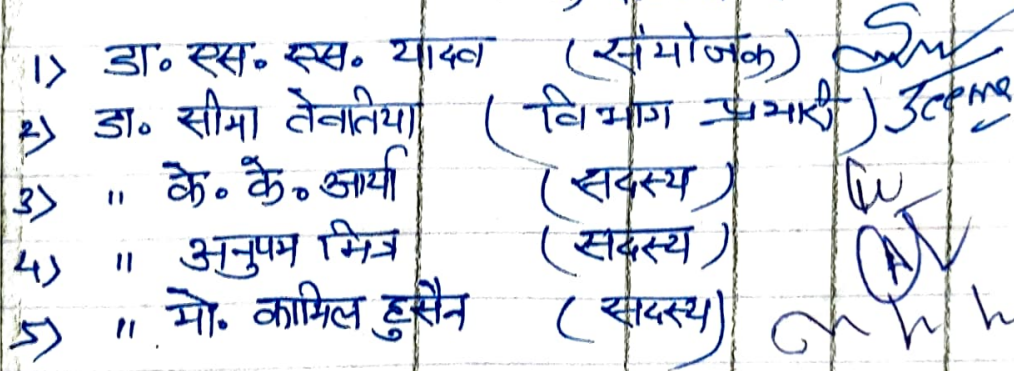 1) डा॰ एस॰ एस॰ यादव (संयोजक)
2) डा॰ सीमा तेवतिया (विभाग प्रभारी) Seema
3) " के॰ के॰ आर्या (सदस्य)
4) " अनुपम मित्र (सदस्य)
5) " मो॰ कामिल हुसैन (सदस्य)